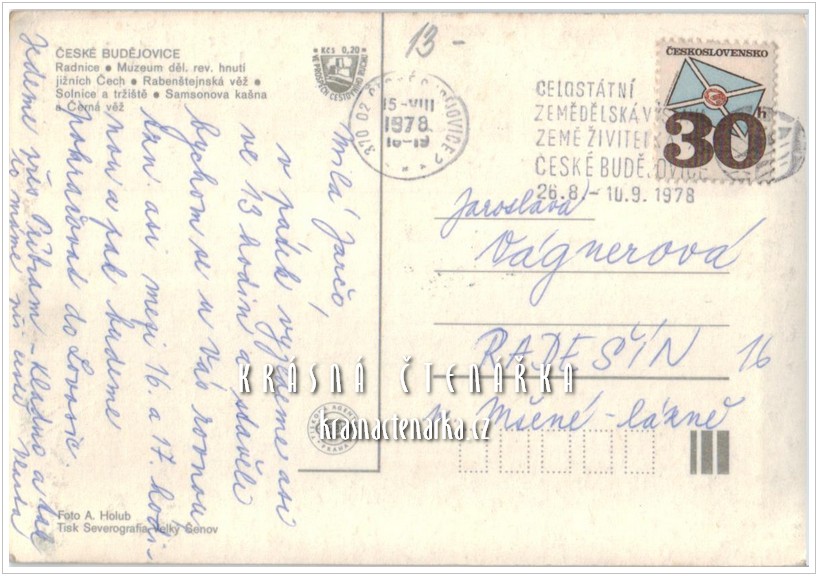 ČESKÉ BUDĚJOVICE
Radnice ● Muzeum děl. rev. hnutí
jižních Čech ● Rabenštejnská věž ●
Solnice a tržiště ● Samsonova kašna
a Černá věž
Kčs 0,20
13 -
370 02 ČESKÉ BUDĚJOVICE 2
15-VIII
1978
16-19
CELOSTÁTNÍ
ZEMĚDĚLSKÁ
ZEMĚ ŽIVITEL
ČESKÉ BUDĚJOVICE
26.8.- 10.9. 1978
ČESKOSLOVENSKO
30h
Milá Jarčo,
v pátek vyjedeme asi
ve 13 hodin a stavěli
bychom se u Vás rovnou
tam. asi mezi 16. a 17. hodi-
nou a pak budeme
pokračovat do Lovosic.
Jedeme přes Příbram - Kladno a tak
to máme
Jaroslava
Vágnerová
RADEŠÍN 16
p. Mšené-lázně
KRÁSNÁ ČTENÁŘKA
krasnactenarka.cz
Foto A. Holub
Tisk Severografia Velký Šenov